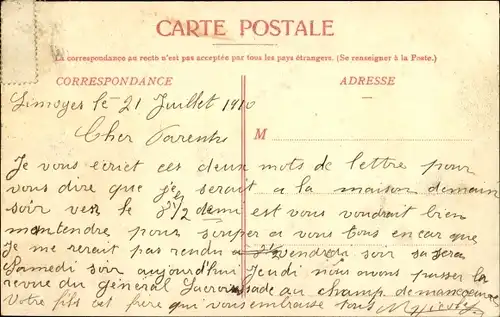 CARTE POSTALE
La correspondance au recto n'est pas acceptée par tous les pays étrangers. (Se renseigner à la Poste.)
CORRESPONDANCE
ADRESSE
Limoges le 21 Juillet 1910
Cher Parents
M
Je vous écriet ces deux mots de lettre pour
vous dire que je serait a la maison demain
soir ver le 8 1/2 demi est vous voudrait bien
mantendre pour souper a vous tous encar que
Je me rerait pas rendu a vendredi soir sa sera
Samedi soir aujourd'hui Jeudi nous avons passer la
revue du général Lacroisade au champ de manoeuvre
Votre fils est frere qui vous embrasse tous